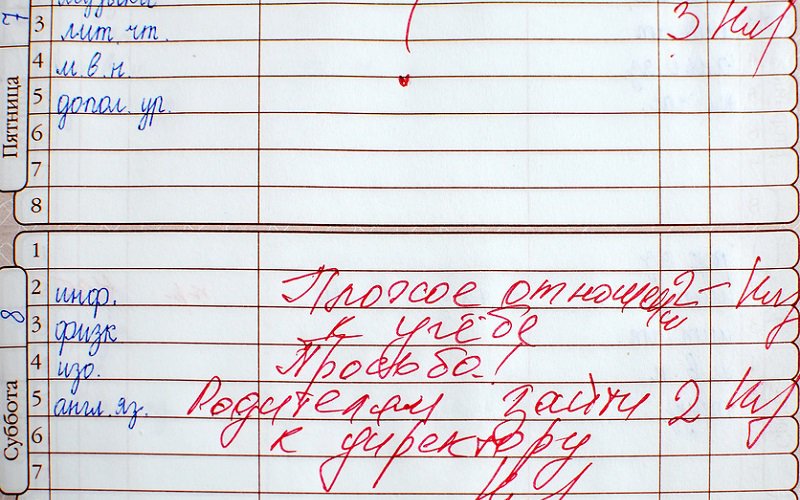 7
музыка
3 лит. чт. 3
4 м.в.н.
5 допол. ур.
6
7
8
Пятница
1
2 инф. Плохое отношен 2-
3 физк к учёбе
4 изо. Просьба!
5 англ. яз. Родителям зайти 2
6 к директору
7
8
Суббота